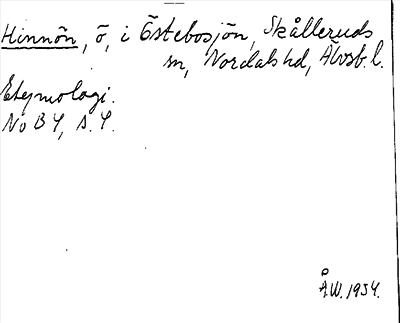 Hinnön, ö, i Östebosjön, Skålleruds
sn, Nordals hd, Älvsb. l.
Etymologi.
NoB 4, s. 4.
ÅW. 1934.